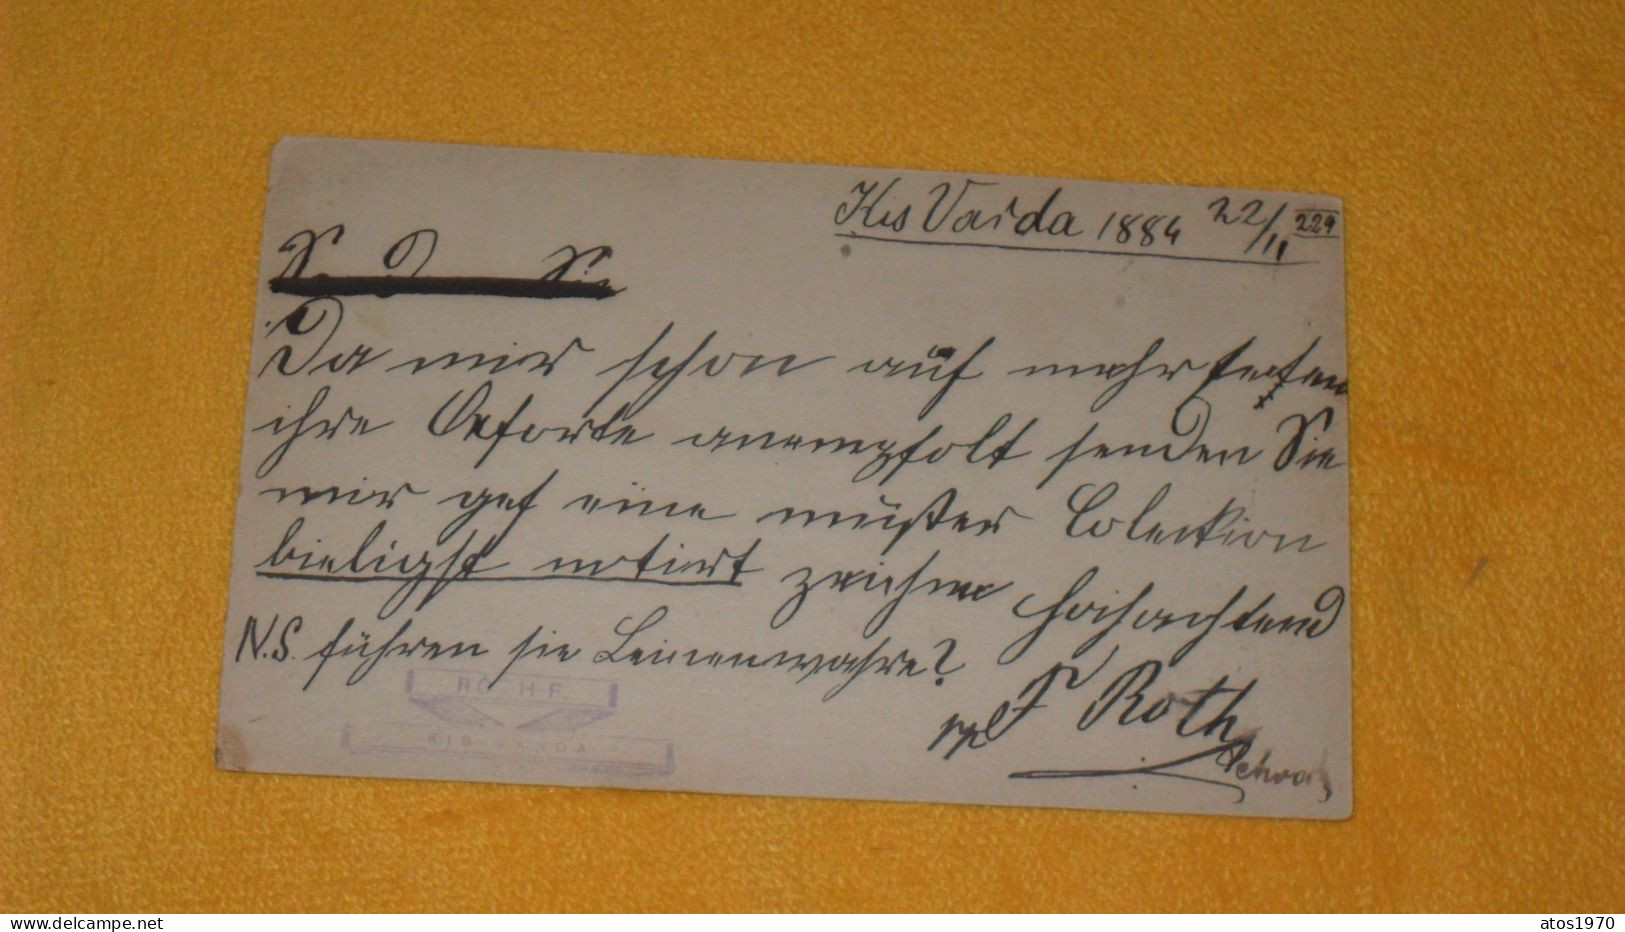 Kis Varda 1884 22/11 229
Da mir schon auf mehr seiten
ihre Oeforte anempfolt senden Sie
mir gef eine mußter Colecktion
bieligst notirt zeichne hochachtend
N.S. führen sie Leinenwahre?
ppl F Roth
ROTH F.
KIS VARDA
atos1970